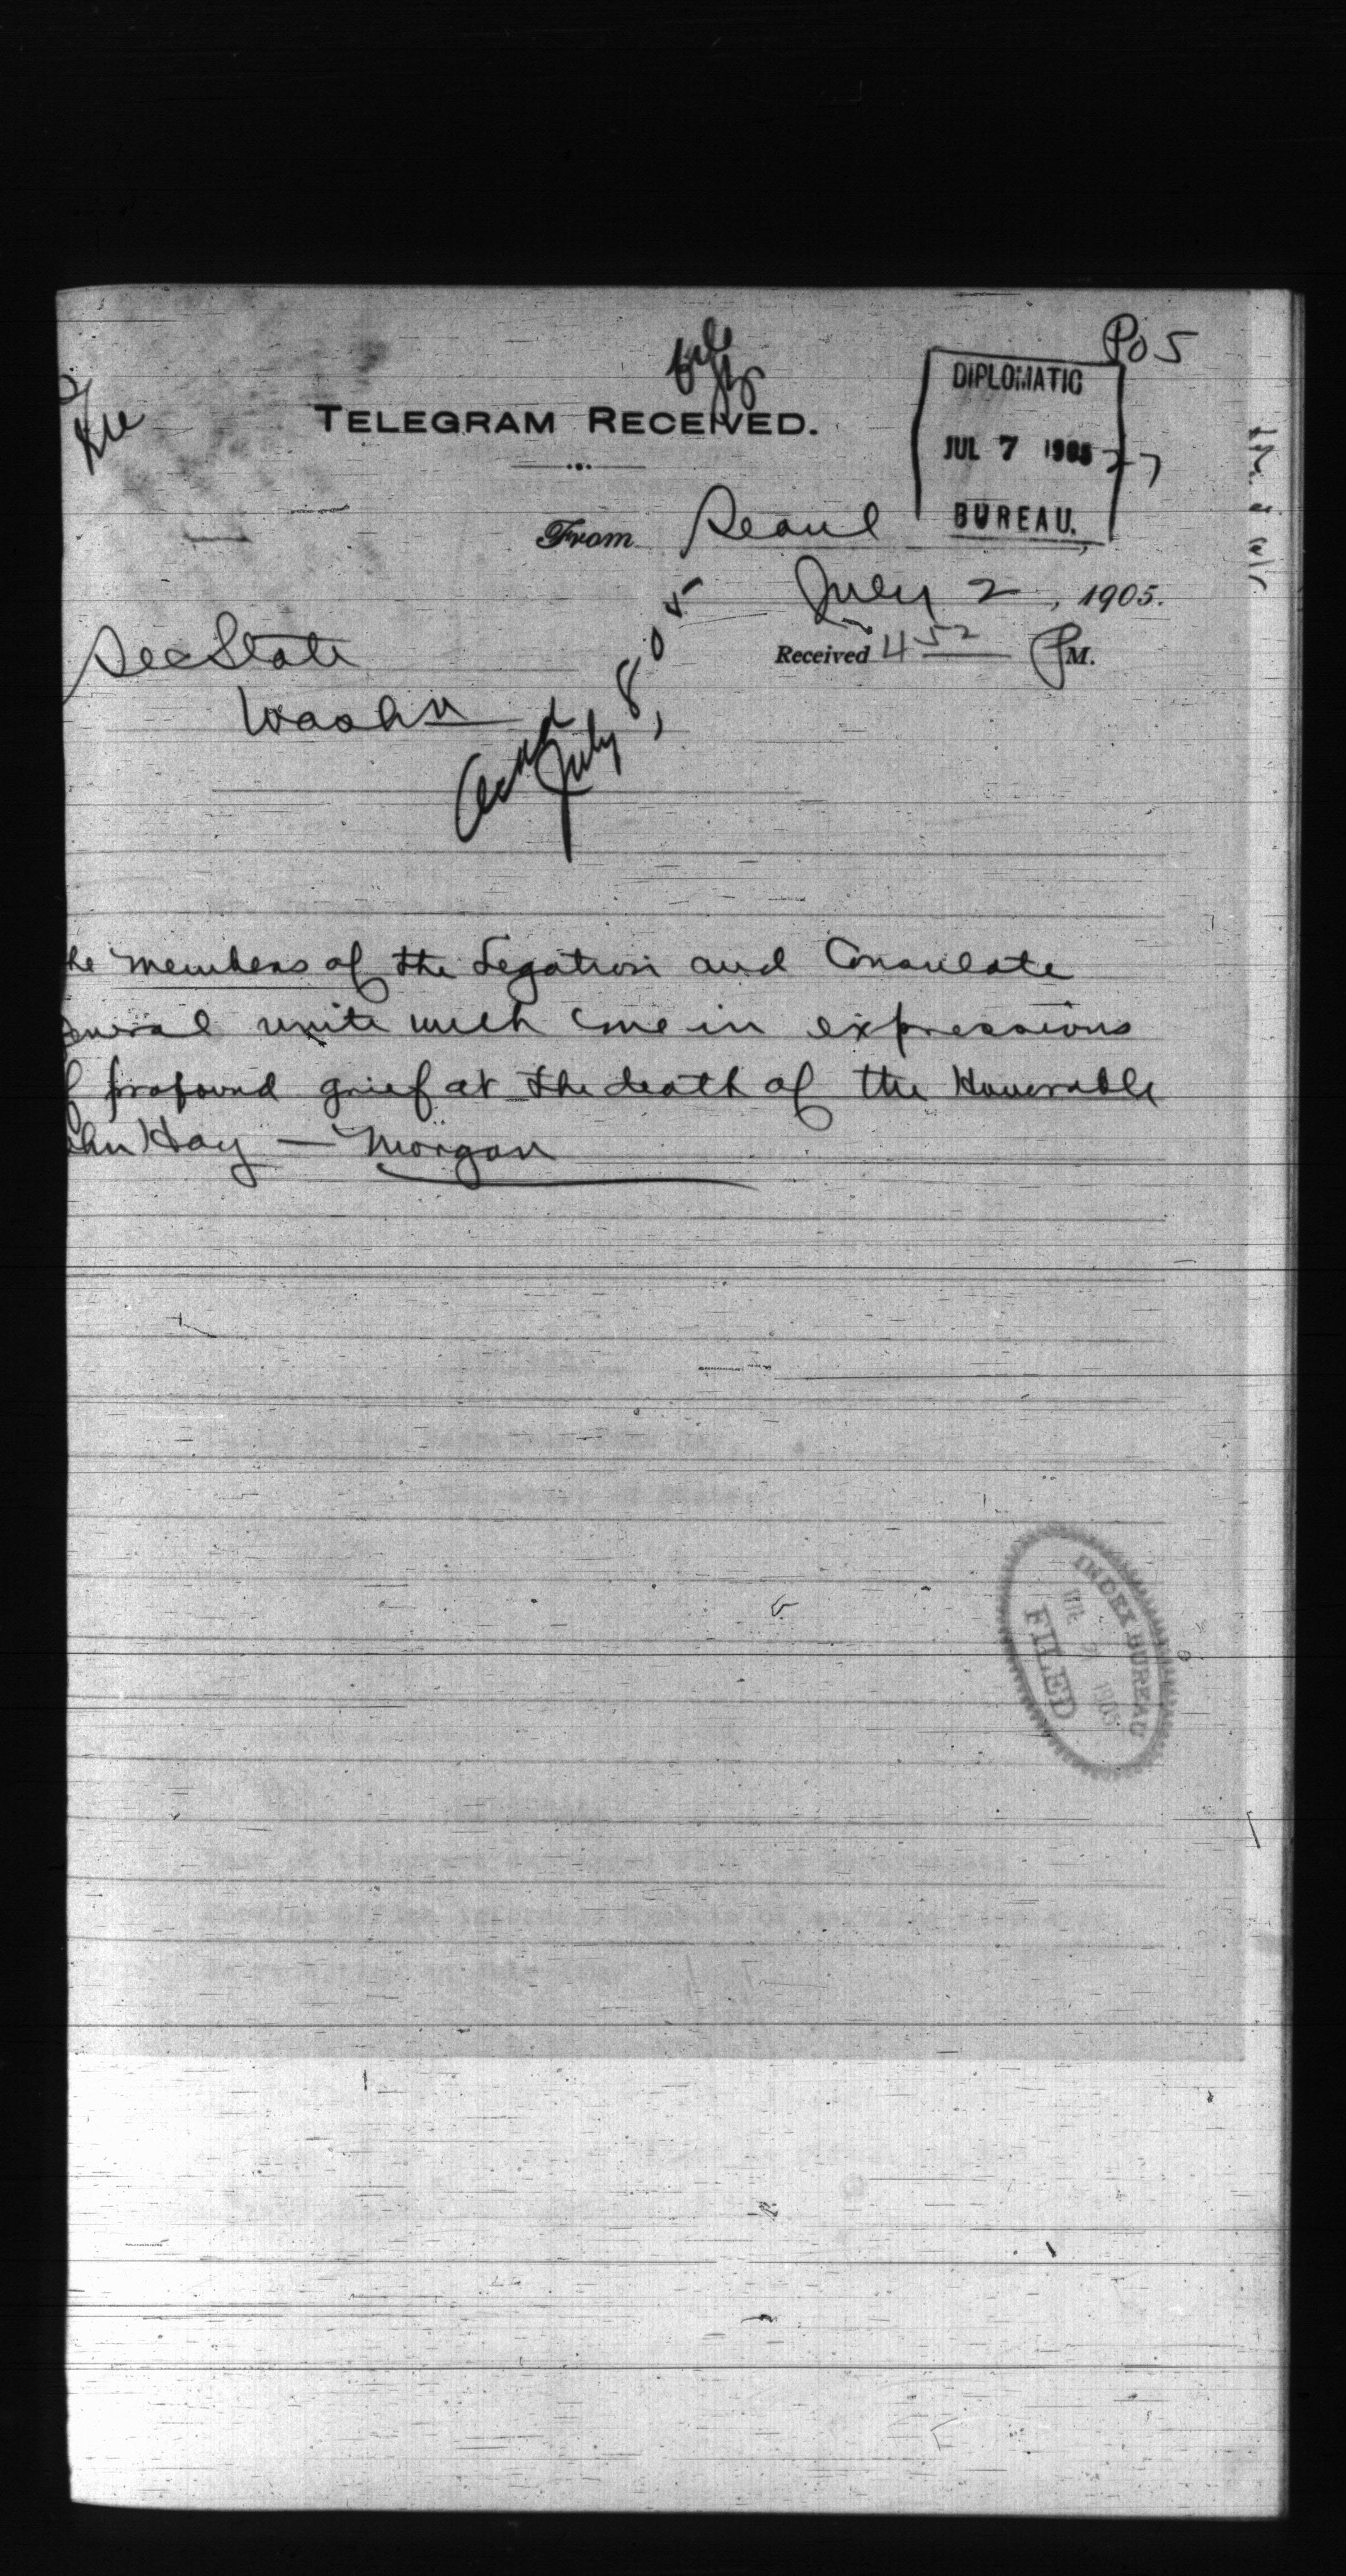 P05
DIPLOMATIC
TELEGRAM RECEIVED.
JUL 7 1905
BUREAU.
From Seoul
July 2, 1905.
Received 4 52 P M.
SecState
Washn
Ackd July 8, 05
he members of the Legation and Consulate
eneral unite with me in expressions
f profound grief at the death of the Honorable
ohn Hay — Morgan
INDEX BUREAU
1905
FILED